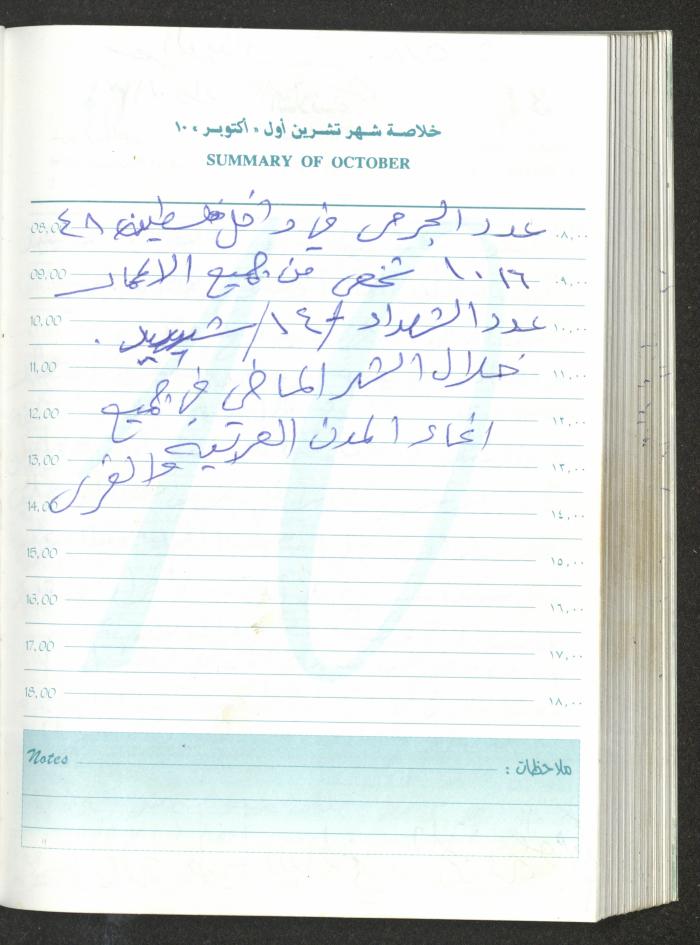 خلاصة شهر تشرين أول «أكتوبر» ١٠
SUMMARY OF OCTOBER
عدد الجرحى في داخل فلسطين ٤٨
08.00 ٠٨,٠٠
١٠١٦ شخص من جميع الاعمار
09.00 ٠٩,٠٠
عدد الشهداء /١٤/ شهيد.
10.00 ١٠,٠٠
خلال الشهر الماضي في جميع
11.00 ١١,٠٠
12.00 ١٢,٠٠
انحاء المدن العربية والقرى
13.00 ١٣,٠٠
14.00 ١٤,٠٠
15.00 ١٥,٠٠
16.00 ١٦,٠٠
17.00 ١٧,٠٠
18.00 ١٨,٠٠
Notes ملاحظات :